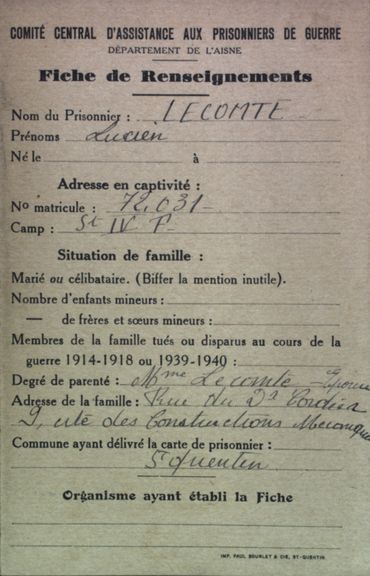 COMITÉ CENTRAL D'ASSISTANCE AUX PRISONNIERS DE GUERRE
DÉPARTEMENT DE L'AISNE
Fiche de Renseignements
Nom du Prisonnier : LECOMTE
Prénoms Lucien
Né le à
Adresse en captivité :
No matricule : 72.031
Camp : St IV F
Situation de famille :
Marié ou célibataire. (Biffer la mention inutile).
Nombre d'enfants mineurs :
— de frères et sœurs mineurs :
Membres de la famille tués ou disparus au cours de la
guerre 1914-1918 ou 1939-1940 :
Degré de parenté : Mme Lecomte Epouse
Adresse de la famille : Rue du Dr
9, cité des Constructions Mecaniques
Commune ayant délivré la carte de prisonnier :
St Quentin
Organisme ayant établi la Fiche
IMP. PAUL BOURLET & CIE, ST-QUENTIN